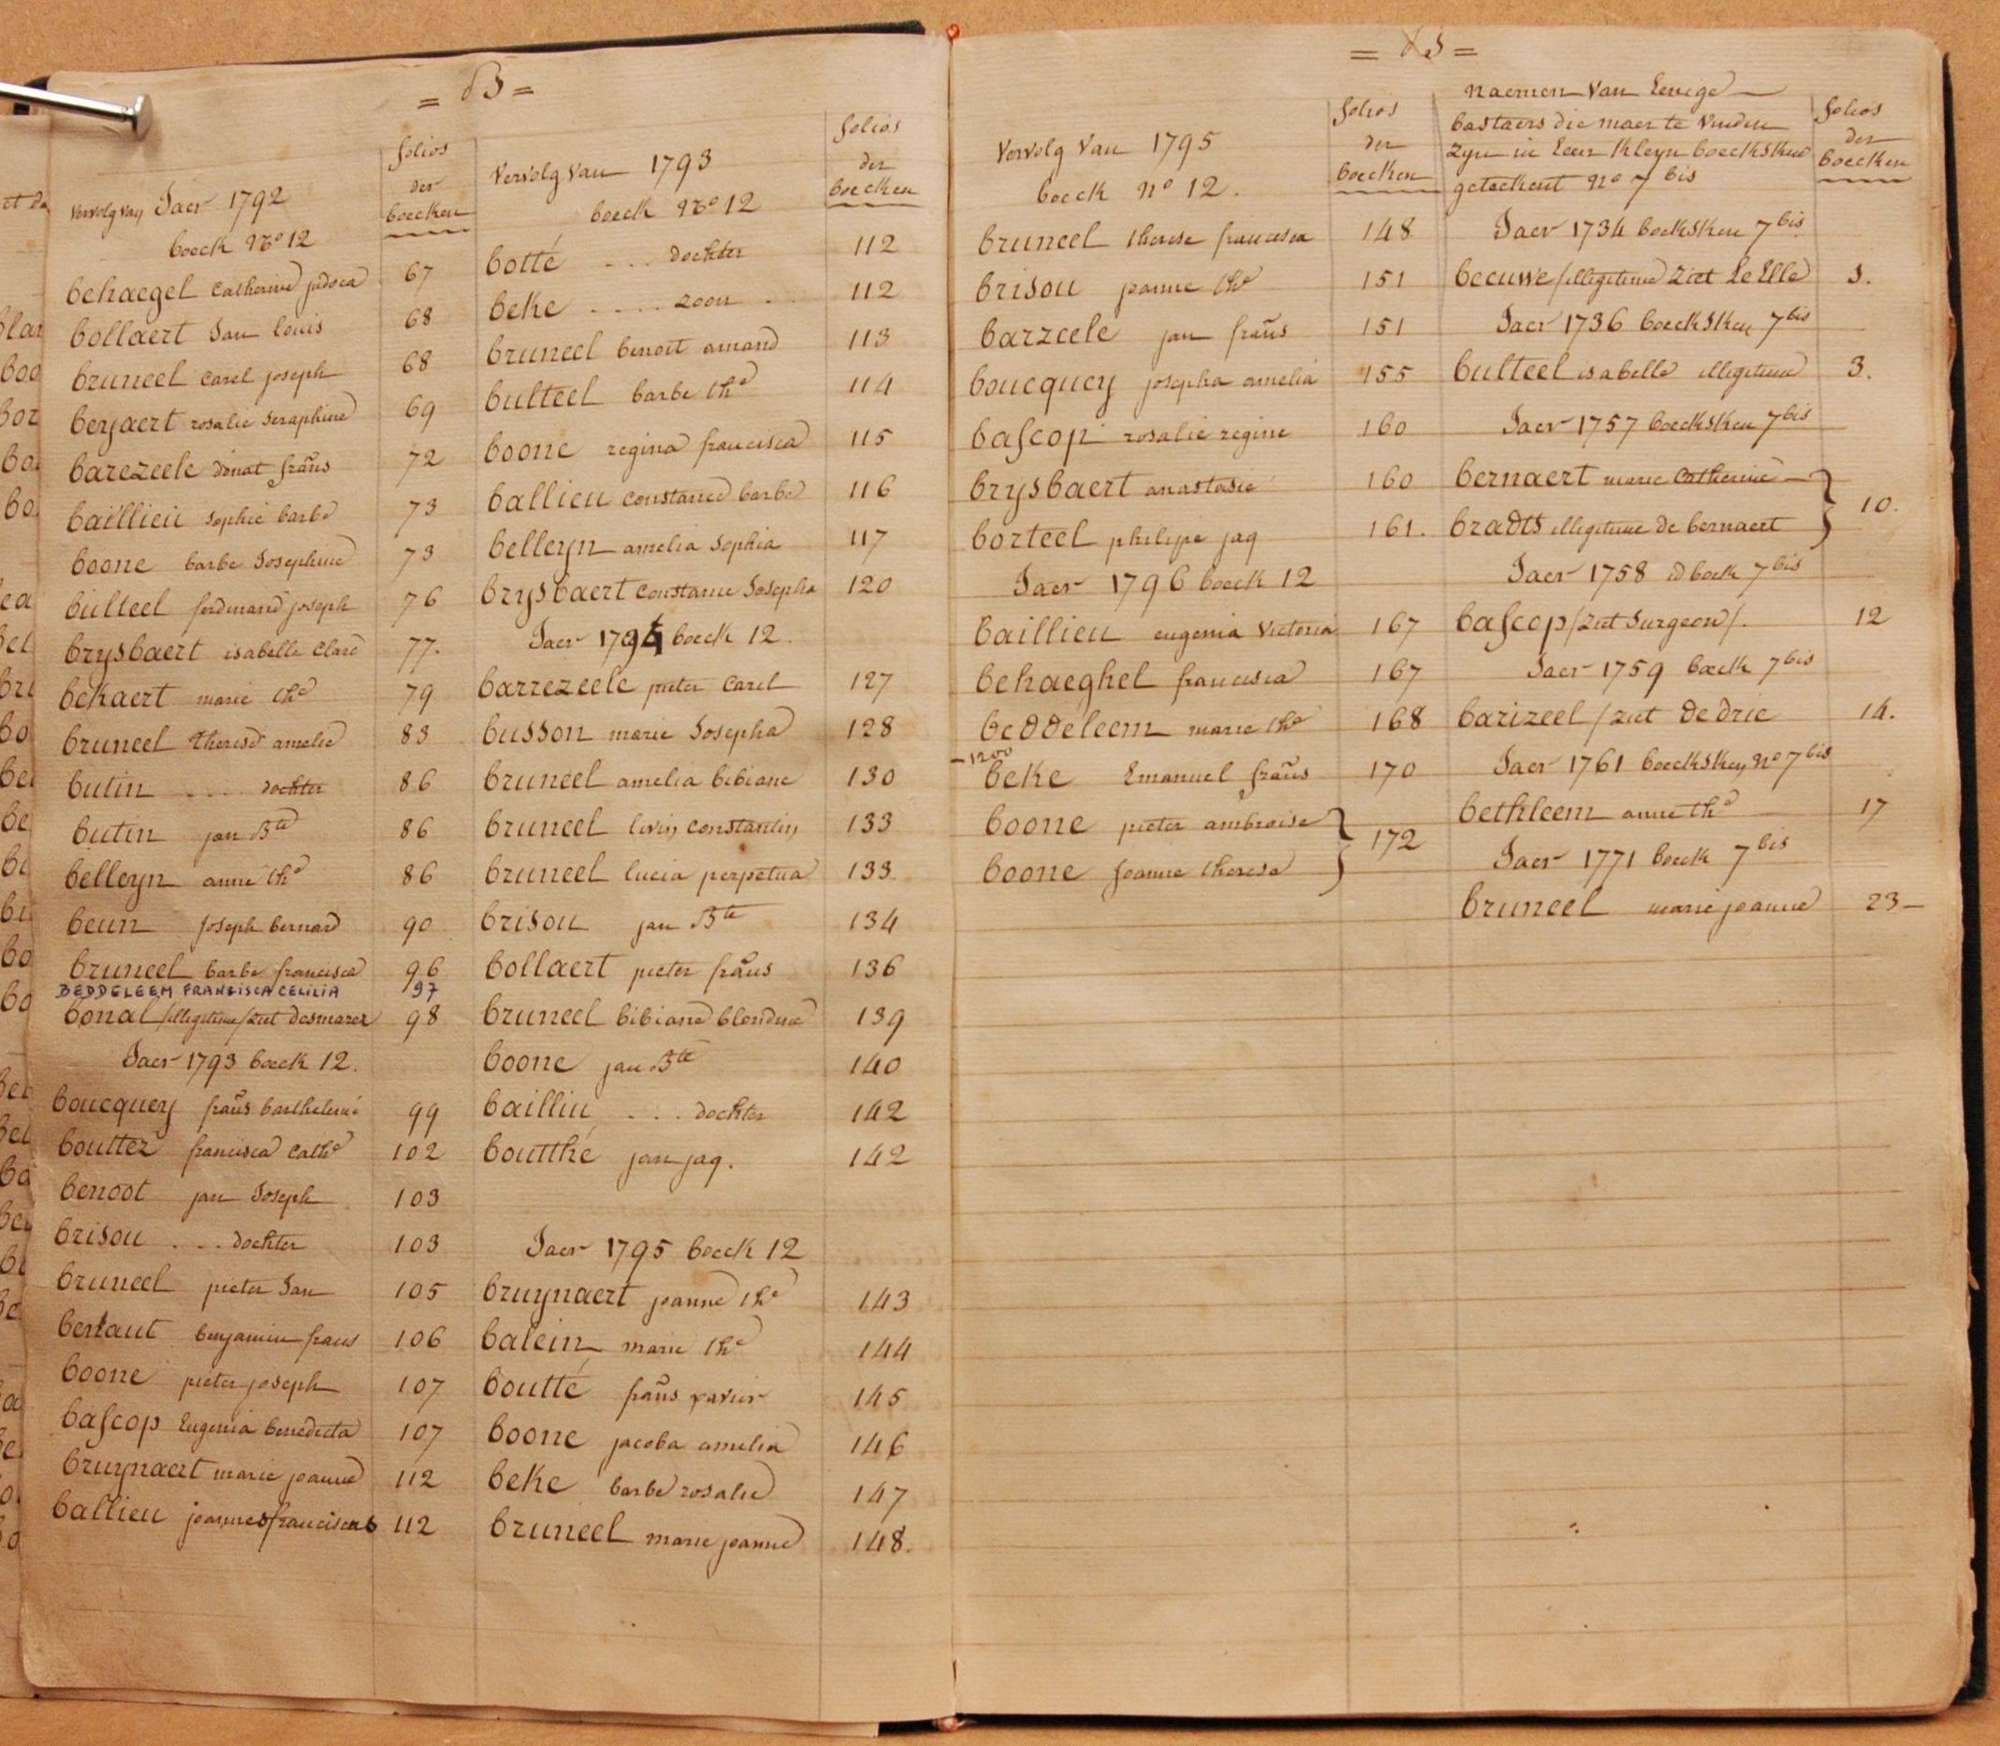 = B =
vervolg van Jaer 1792
boeck No 12
folios
der
boecken
behaegel Catherine judoca 67
bollaert Jan louis 68
bruneel Carel joseph 68
beyaert rosalie seraphine 69
barezeele donat frañs 72
baillieu sophie barbe 73
boone barbe Josephine 73
bulteel ferdinand joseph 76
brysbaert isabelle Clare 77.
bekaert marie the 79
bruneel Therese amelie 83
butin .... dochter 86
butin jan Bte 86
belleyn anne the 86
beun Joseph bernard 90
bruneel barbe francisca 96
BEDDELEEM FRANSISCA CELILIA 97
bonal /illegitime/ziet desmarez 98
Jaer 1793 boeck 12.
boucquey frañs barthelemé 99
bouttez francisca Cathe 102
benoot jan Joseph 103
brisou ... dochter 103
bruneel pieter Jan 105
berlaut benjamin frans 106
boone pieter joseph 107
bascop Eugenia benedicta 107
bruynaert marie joanne 112
ballieu joannes franciscus 112
vervolg van 1793
boeck No 12
folios
der
boecken
botté .... dochter 112
beke .... zoon 112
bruneel benoit amand 113
bulteel barbe the 114
boone regina francisca 115
ballieu constance barbe 116
belleyn amelia sophia 117
brysbaert Constance Josepha 120
Jaer 1794 boeck 12.
barrezeele pieter Carel 127
busson marie Josepha 128
bruneel amelia bibiane 130
bruneel livin constantin 133
bruneel lucia perpetua 133
brisou jan Bte 134
bollaert pieter frañs 136
bruneel bibiane blondine 139
boone jan Bte 140
bailliu ... dochter 142
boutthé jan jaq. 142
Jaer 1795 boeck 12
bruynaert joanne the 143
balein marie the 144
boutté frañs xavier 145
boone jacoba amelia 146
beke barbe rosalie 147
bruneel marie joanne 148.
vervolg van 1795
boeck no 12.
folios
der
boecken
bruneel therese francisca 148
brisou joanne the 151
barzeele jan frañs 151
boucquey josepha amelia 155
bascop rosalie regine 160
brysbaert anastasie 160
borteel philipe jaq 161.
Jaer 1796 boeck 12
baillieu eugenia victoria 167
behaeghel francisca 167
beddeleem marie the 168
-1200
beke Emanuel frañs 170
boone pieter ambroise
boone Joanne therese } 172
naemen van Eenige
bastaers die maer te vinden
zyn in Een kleyn boecksken
geteekent no 7 bis
folios
der
boecken
Jaer 1734 boeksken 7 bis
beeuwe /illegitime ziet Le Elle 3.
Jaer 1736 boecksken 7 bis
bulteel isabelle illegitime 3.
Jaer 1757 boecksken 7 bis
bernaert marie Catherine
bradts illegitime de bernaert } 10.
Jaer 1758 id boek 7 bis
bascop /ziet Surgeon/. 12
Jaer 1759 boeck 7 bis
barizeel /ziet de drie 14.
Jaer 1761 boecksken no 7 bis
bethleem anne the 17
Jaer 1771 boeck 7 bis
bruneel marie joanne 23